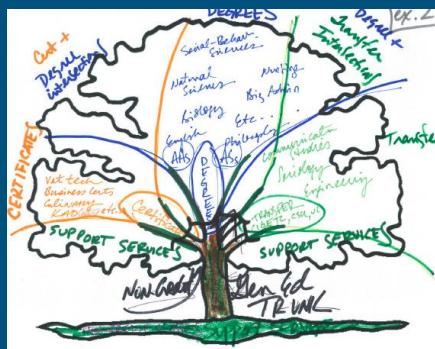 DEGREES
ex. 2
Cert +
Degree
intersection
Degree +
Transfer
Intersection
Social-Behav.
Sciences
Natural
Sciences
Nursing
Biology
Big Admin
Etc..
English
Philosophy
AAs
DEGREES
ASs
Communication
Studies
Sociology
Engineering
Transfer
CERTIFICATES
Vet tech
Business Certs
Culinary
etc.
Certificates
TRANSFER
CSU, UC
SUPPORT SERVICES
SUPPORT SERVICES
Non Credit
Gen Ed
TRUNK